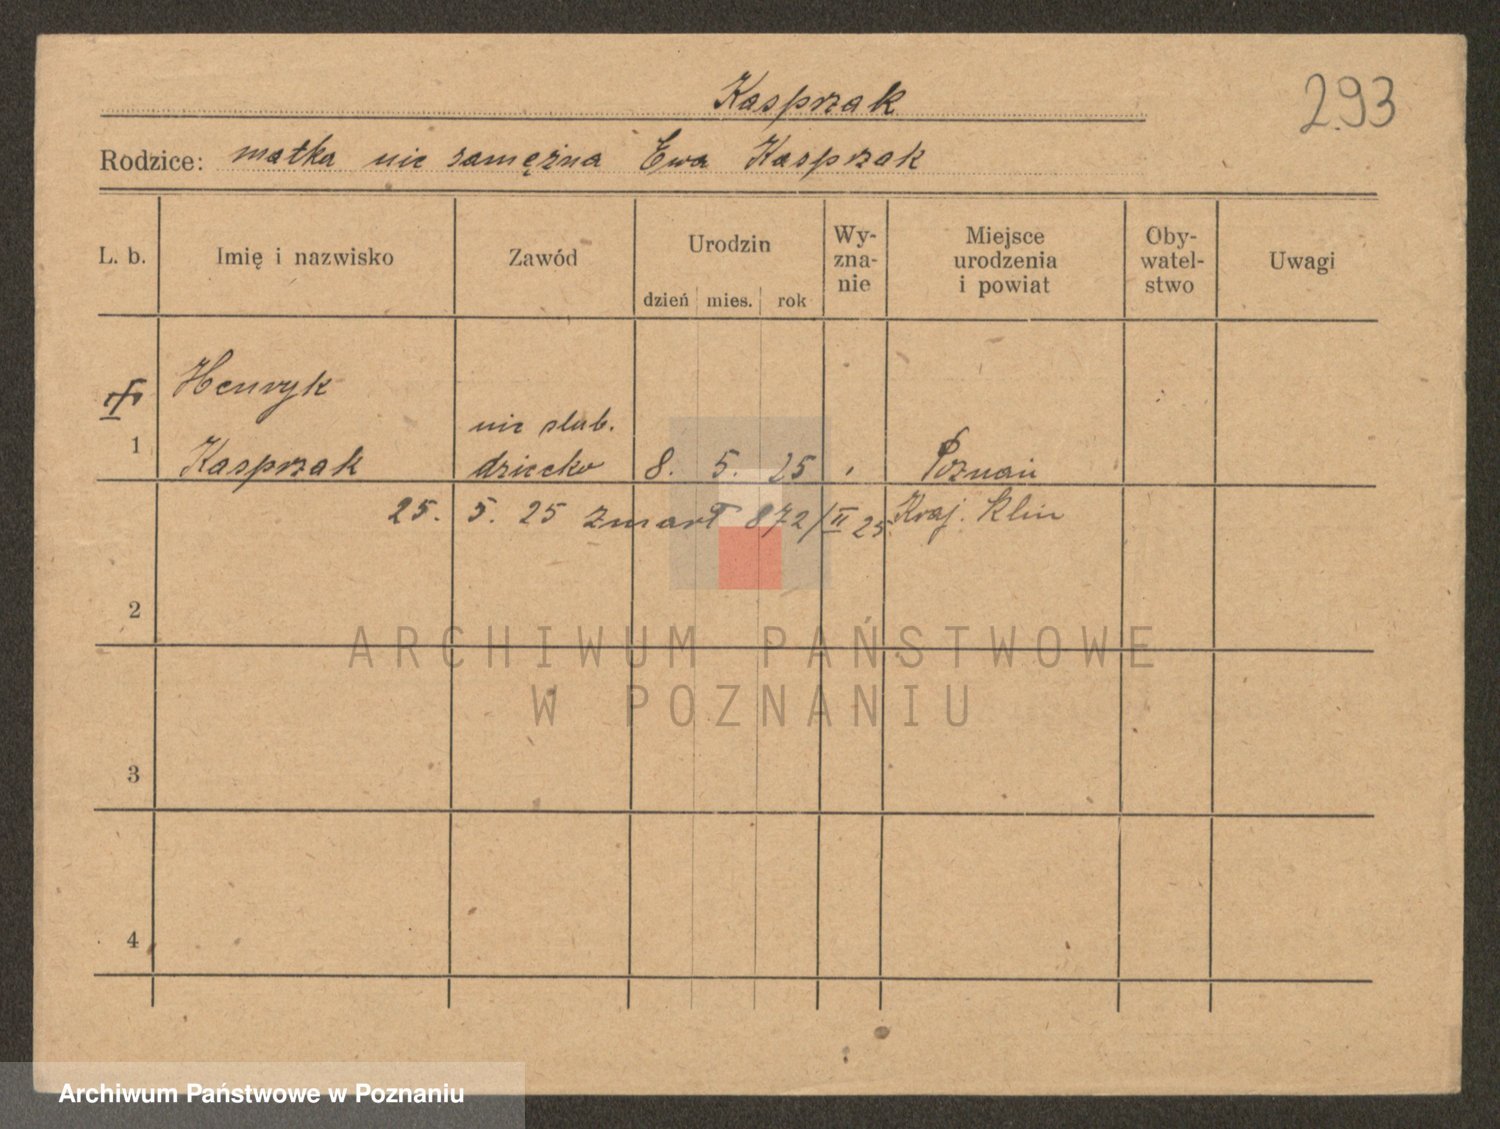 Kasprzak
293
Rodzice: matka nie zamężna Ewa Kasprzak
L. b.
Imię i nazwisko
Zawód
Urodzin
dzień mies. rok
Wy-
zna-
nie
Miejsce
urodzenia
i powiat
Oby-
watel-
stwo
Uwagi
Henryk
1
Kasprzak
nie slub.
dziecko
8. 5. 25
Poznań
25. 5. 25 zmarł 872/II 25
Kraj. Klin
2
3
4
ARCHIWUM PAŃSTWOWE
W POZNANIU
Archiwum Państwowe w Poznaniu